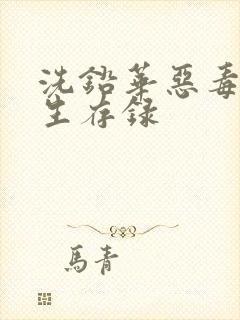 洗鉛華惡毒
生存録
馬青